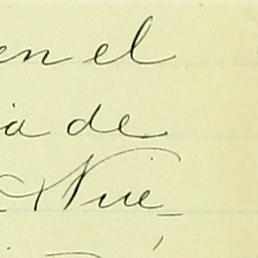 en el
ia de
Nue_